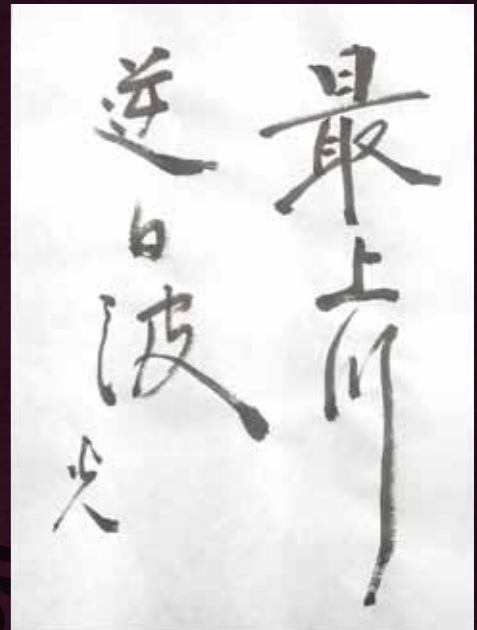 最上川
逆白波
光